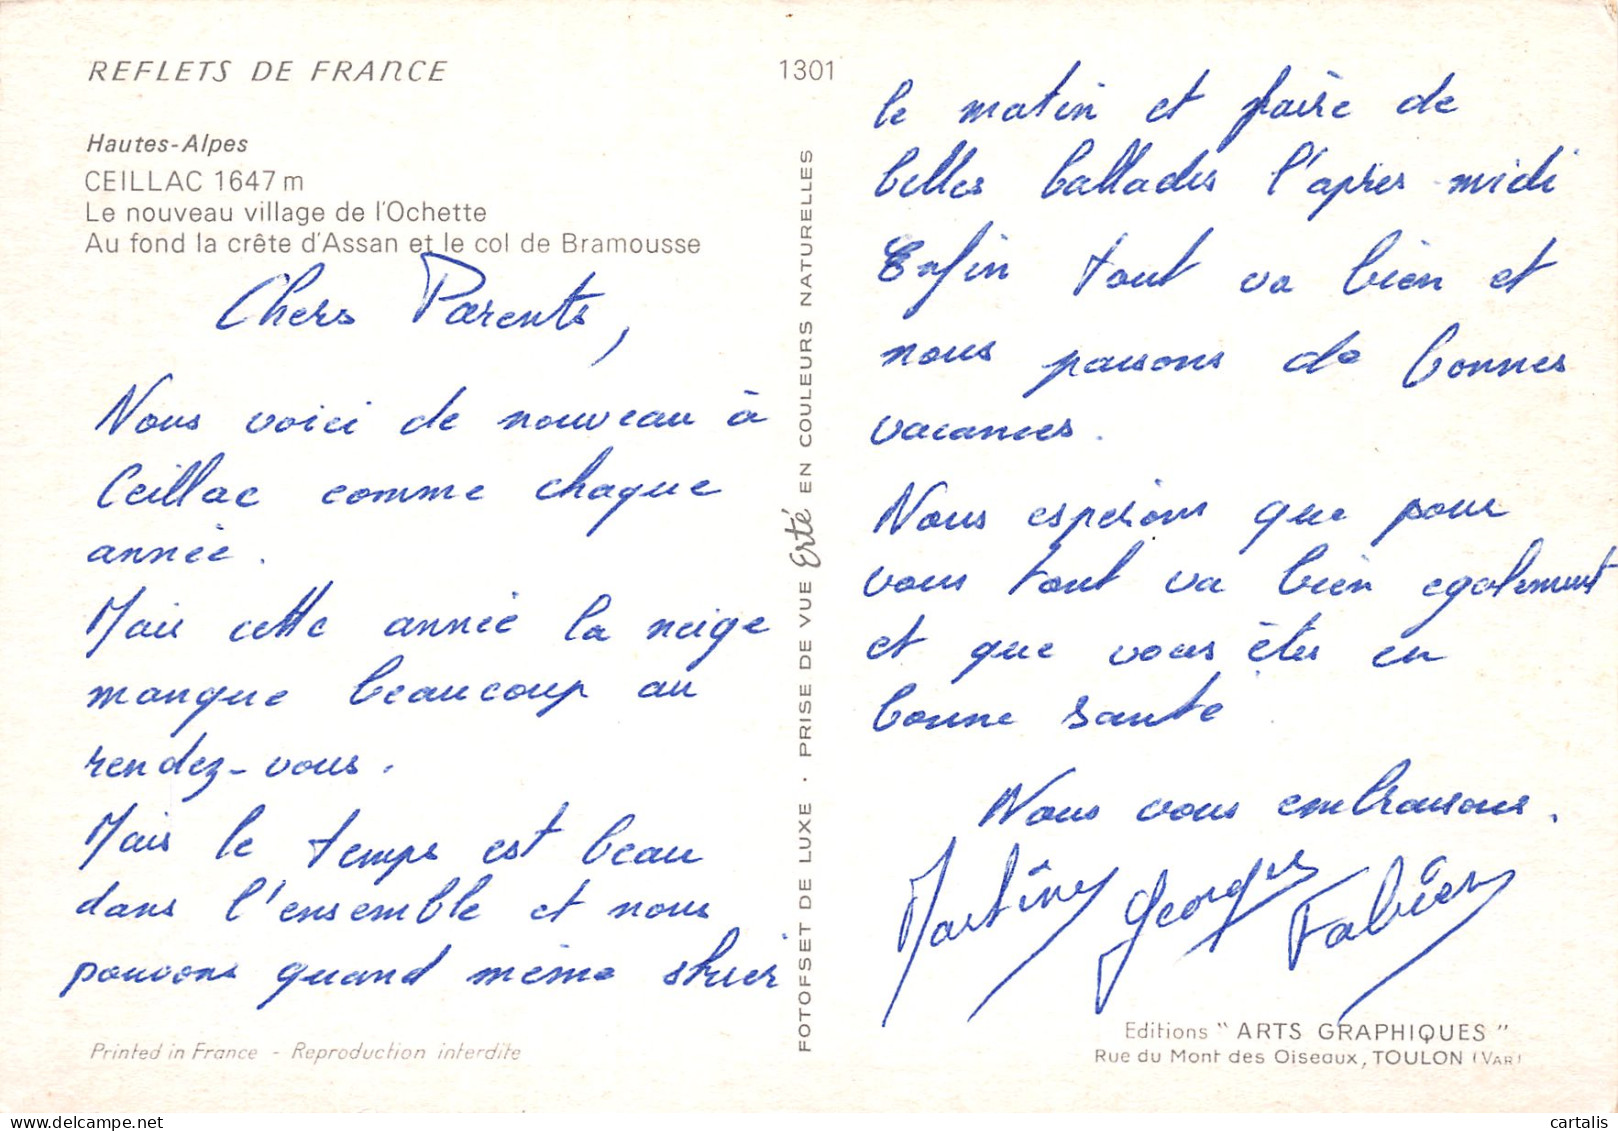 REFLETS DE FRANCE
1301
Hautes-Alpes
CEILLAC 1647 m
Le nouveau village de l'Ochette
Au fond la crête d'Assan et le col de Bramousse
Chers Parents,
Nous voici de nouveau à
Ceillac comme chaque
année.
Mais cette année la neige
manque beaucoup au
rendez-vous.
Mais le temps est beau
dans l'ensemble et nous
pouvons quand même skier
le matin et faire de
belles ballades l'après-midi
Enfin tout va bien et
nous passons de bonnes
vacances.
Nous espérions que pour
vous tout va bien egalement
et que vous êtes en
bonne santé
Nous vous embrassons.
Martine Georges Fabien
FOTOFSET DE LUXE . PRISE DE VUE Erté EN COULEURS NATURELLES
Printed in France - Reproduction interdite
Editions "ARTS GRAPHIQUES"
Rue du Mont des Oiseaux, TOULON (VAR)
cartalis